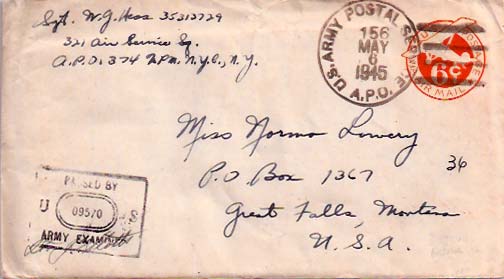 Sgt. W.G. Hess 35313729
321 Air Service Sq.
A.P.O. 374 %P.M. N.Y.C., N.Y.
U.S. ARMY POSTAL SERVICE
156
MAY
6
1945
A.P.O.
6c
AIR MAIL
Miss Norma Lowery
P.O. Box 1367
36
Great Falls, Montana
U.S.A.
PASSED BY
U S
09570
ARMY EXAMINER